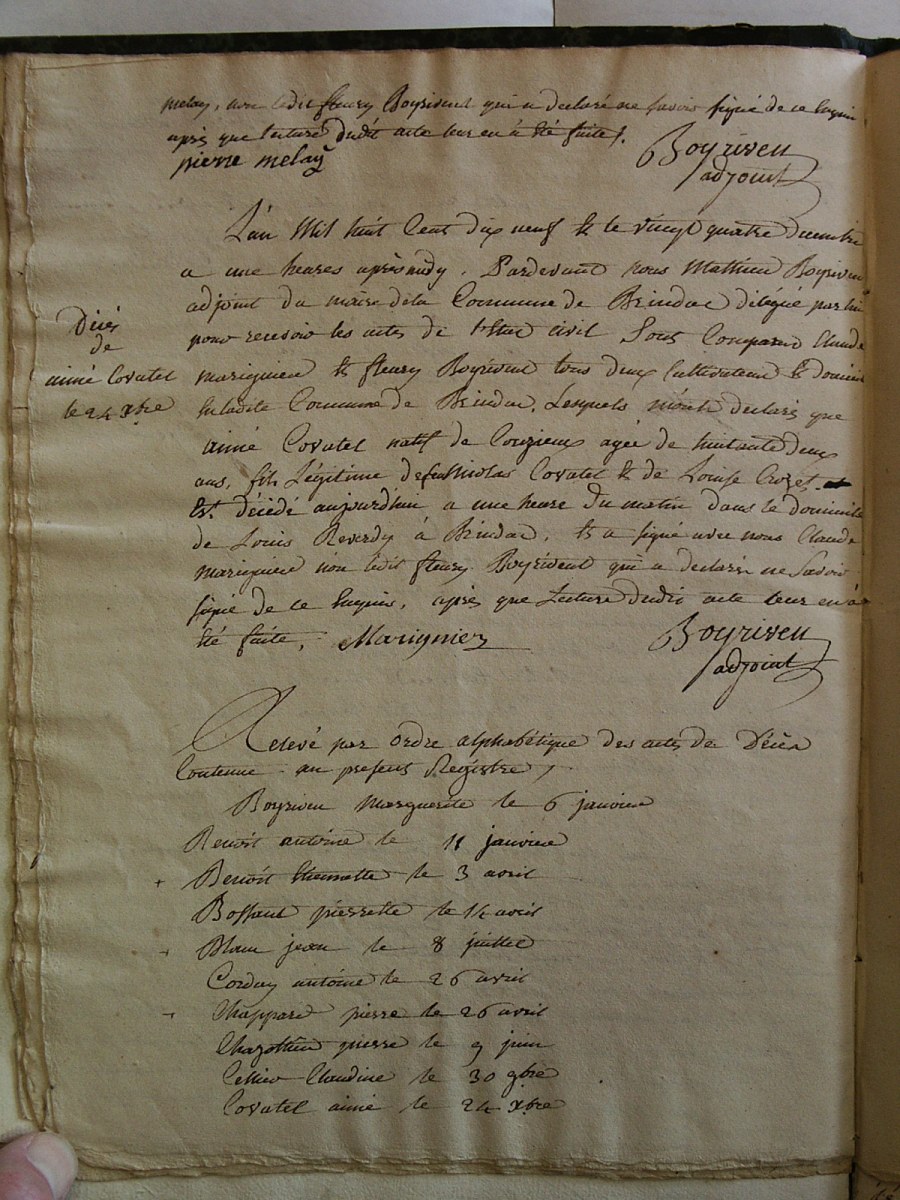 melay, non ledit fleury Boyrivent qui a declaré ne savoir signé de ce Enquis
après que lecture dudit acte leur en à été faite.
pierre melay
Boyriven
adjoint
L'an Mil huit Cent dix neuf & le vingt quatre decembre
a une heures après midy. Pardevant nous Mathieu Boyriven
adjoint du maire de la Commune de délégué par lui
pour recevoir les actes de l'Etat civil Sont Comparus Claude
marignier & fleury Boyrivent tous deux Cultivateurs &
ladite Commune de Lesquels m'ont declarés que
Décès
de
aimé Covatel
le 24 xbre
aimé Covatel natif de agée de deux
ans, fils Légitime de feu Nicolas Covatel & de Louise Crozet
Est décédé aujourdhui a une heure du matin dans le domicile
de Louis Reverdy à & a signé avec nous Claude
marignier non ledit fleury Boyrivent qui a declaré ne Savoir
signé de ce Enquis, après que Lecture dudit acte leur en à
été faite. Marignier
Boyriven
adjoint
Relevé par ordre alphabétique des actes de Décès
Contenue au present Régistre,
Boyriven Marguerite le 6 janvier
Benoit antoine le 11 janvier
+ Benoit le 3 avril
pierrette le 14 avril
jean le 8 juillet
antoine le 26 avril
Chappard pierre le 26 avril
pierre le 9 juin
Claudine le 30 9bre
Covatel aimé le 24 xbre